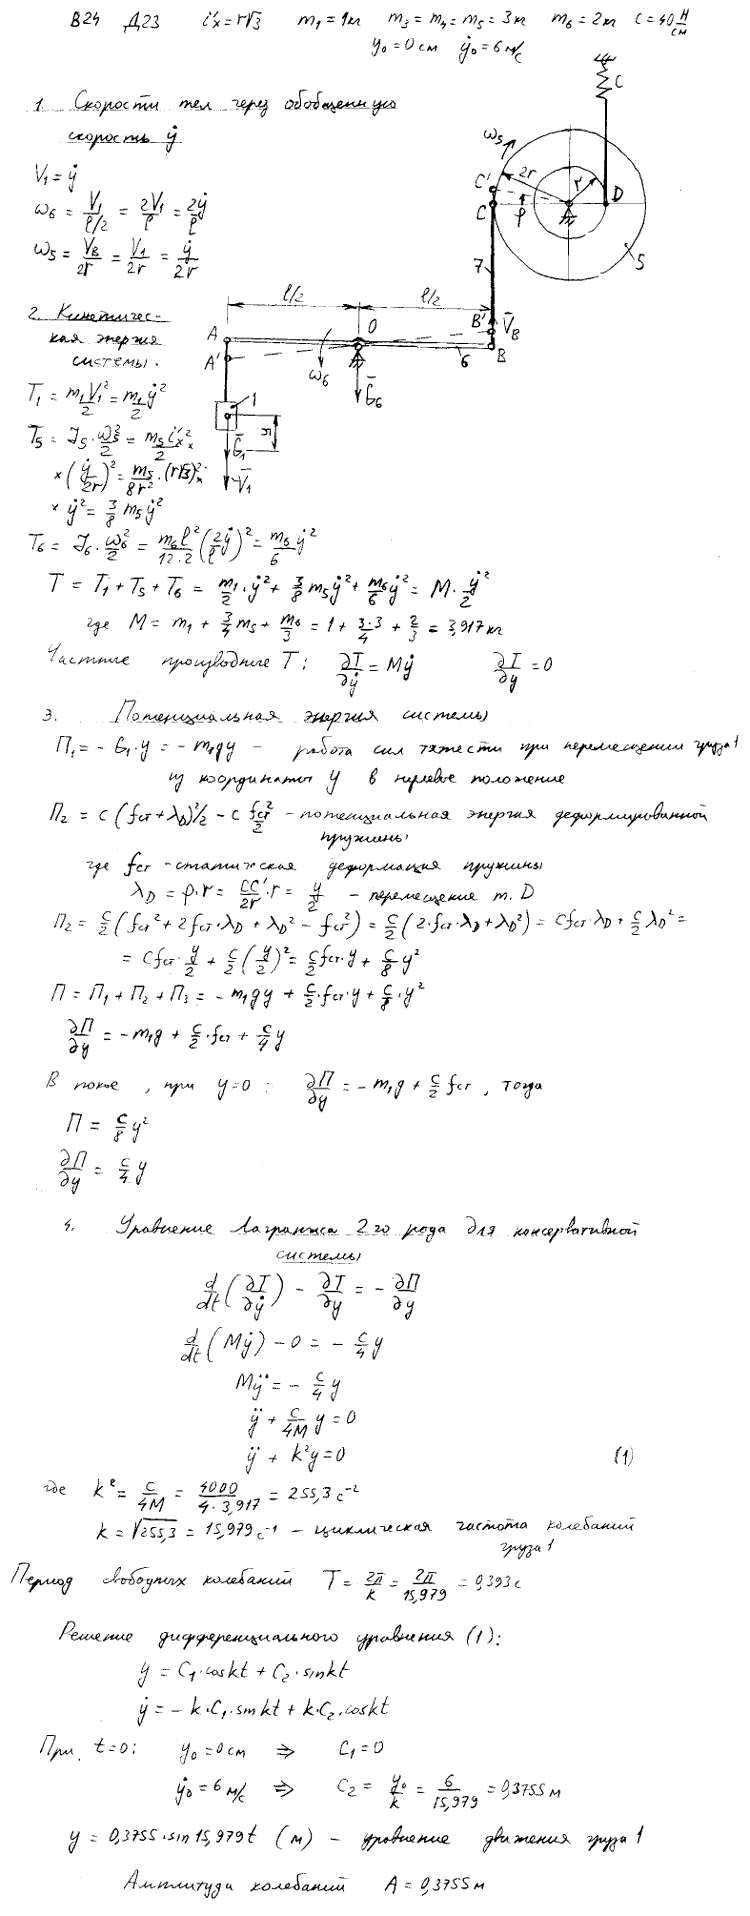 В24 Д23 i'x = r√3 m₁ = 1кг m₃ = m₄ = m₅ = 3кг m₆ = 2кг c = 40 Н/см
y₀ = 0 см ẏ₀ = 6 м/с
1. Скорости тел через обобщенную
скорость ẏ
V₁ = ẏ
ω₆ = V₁/(l/2) = 2V₁/l = 2ẏ/l
ω₅ = V_B/2r = V₁/2r = ẏ/2r
C
ω₅
2r
r
C'
C
φ
D
5
7
l/2
l/2
A
O
B'
V̄_B
A'
ω₆
6
B
Ḡ₆
1
y
Ḡ₁
V̄₁
2. Кинетичес-
кая энергия
системы.
T₁ = m₁V₁²/2 = m₁/2 ẏ²
T₅ = J₅·ω₅²/2 = m₅/2 i'x² ×
× (ẏ/2r)² = m₅/8r² · (r√3)² ×
× ẏ² = 3/8 m₅ẏ²
T₆ = J₆·ω₆²/2 = m₆l²/12·2 (2/l ẏ)² = m₆/6 ẏ²
T = T₁ + T₅ + T₆ = m₁/2 · ẏ² + 3/8 m₅ẏ² + m₆/6 ẏ² = M · ẏ²/2
где M = m₁ + 3/4 m₅ + m₆/3 = 1 + 3·3/4 + 2/3 = 3,917 кг
Частные производные T: ∂T/∂ẏ = Mẏ ∂T/∂y = 0
3. Потенциальная энергия системы
П₁ = - G₁·y = - m₁gy - работа сил тяжести при перемещении груза 1
из координаты y в нулевое положение
П₂ = c (fст + λ_D)²/2 - c fст²/2 - потенциальная энергия деформированной
пружины
где fст - статическая деформация пружины
λ_D = φ·r = CC'/2r · r = y/2 - перемещение т. D
П₂ = c/2 (fст² + 2fст·λ_D + λ_D² - fст²) = c/2 (2·fст·λ_D + λ_D²) = cfст·λ_D + c/2 λ_D² =
= cfст·y/2 + c/2 (y/2)² = c/2 fст·y + c/8 y²
П = П₁ + П₂ + П₃ = - m₁gy + c/2·fст·y + c/8·y²
∂П/∂y = - m₁g + c/2·fст + c/4 y
В покое, при y = 0: ∂П/∂y = - m₁g + c/2 fст, тогда
П = c/8 y²
∂П/∂y = c/4 y
4. Уравнение Лагранжа 2го рода для консервативной
системы
d/dt (∂T/∂ẏ) - ∂T/∂y = - ∂П/∂y
d/dt (Mẏ) - 0 = - c/4 y
Mÿ = - c/4 y
ÿ + c/4M y = 0
ÿ + k²y = 0 (1)
где k² = c/4M = 4000/4·3,917 = 255,3 с⁻²
k = √255,3 = 15,979 с⁻¹ - циклическая частота колебаний
груза 1
Период свободных колебаний T = 2π/k = 2π/15,979 = 0,393 с
Решение дифференциального уравнения (1):
y = C₁·coskt + C₂·sinkt
ẏ = - k·C₁·sinkt + k·C₂·coskt
При t = 0: y₀ = 0 см ⇒ C₁ = 0
ẏ₀ = 6 м/с ⇒ C₂ = ẏ₀/k = 6/15,979 = 0,3755 м
y = 0,3755·sin15,979t (м) - уравнение движения груза 1
Амплитуда колебаний A = 0,3755 м